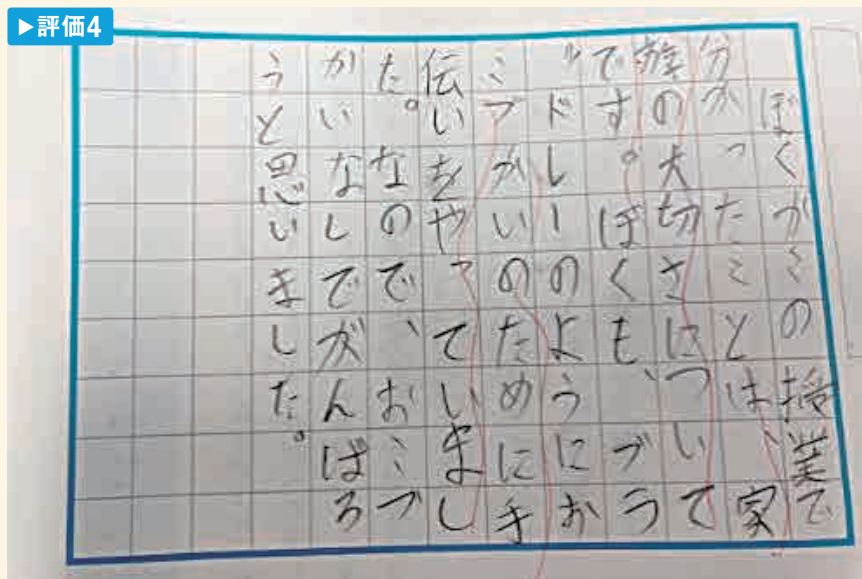 ▶評価4
ぼくがこの授業で
分かったことは、家
族の大切さについて
です。ぼくも、ブラ
ッドレーのようにお
こづかいのために手
伝いをやっていまし
た。なので、おこづ
かいなしでがんばろ
うと思いました。